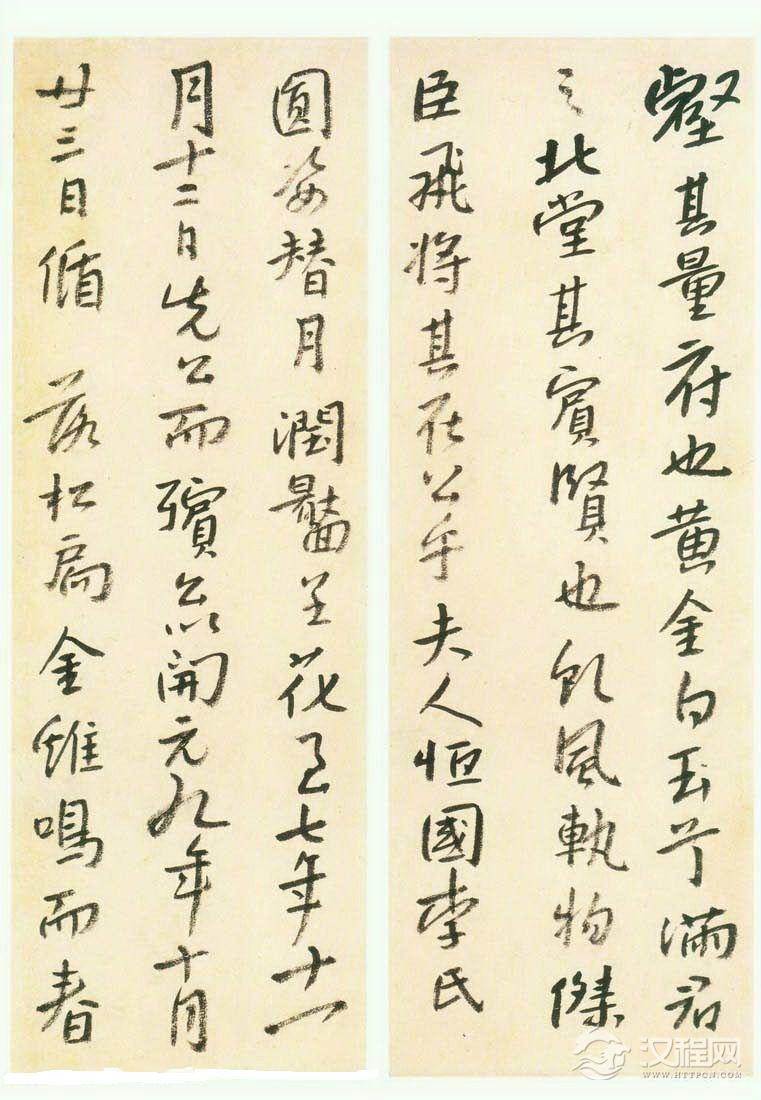 壑其量府也黄金白玉兮满君
之北堂其賓賢也飢風執物傑
臣飛将其在公乎夫人恒國李氏
圓姿替月潤臉呈花以七年十一
月十二日先公而殯以開元九年十月
廿三日循落松扃金雉鳴而春
汉程网
WWW.HTTPCN.COM